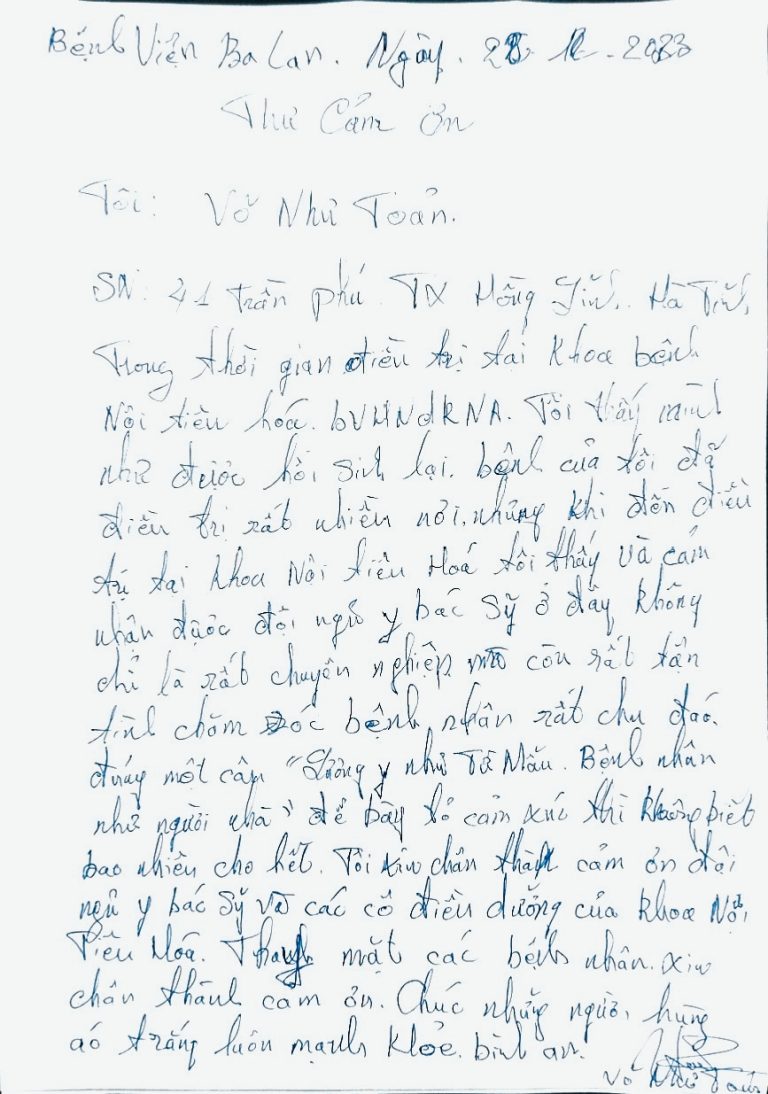 Bệnh Viện Ba Lan. Ngày. 28. 12. 2023
Thư Cảm ơn
Tôi: Võ Như Toản.
SN: 41 trần phú. TX Hồng Lĩnh. Hà Tĩnh.
Trong thời gian điều trị tại khoa bệnh
Nội tiêu hóa. bVHNdKNA. Tôi thấy mình
như được hồi sinh lại. bệnh của tôi đã
điều trị rất nhiều nơi. nhưng khi đến điều
trị tại khoa Nội tiêu Hoá tôi thấy và cảm
nhận được đội ngũ y bác sỹ ở đây không
chỉ là rất chuyên nghiệp mà còn rất tận
tình chăm sóc bệnh nhân rất chu đáo.
đúng một câu "Lương y như Từ Mẫu. Bệnh nhân
như người nhà" để bày tỏ cảm xúc thì không biết
bao nhiêu cho hết. Tôi xin chân thành cảm ơn đội
ngũ y bác sỹ và các cô điều dưỡng của khoa Nội
Tiêu Hóa. Thay mặt các bệnh nhân. xin
chân thành cảm ơn. Chúc những người hùng
áo trắng luôn mạnh khỏe. bình an.
Võ Như Toản